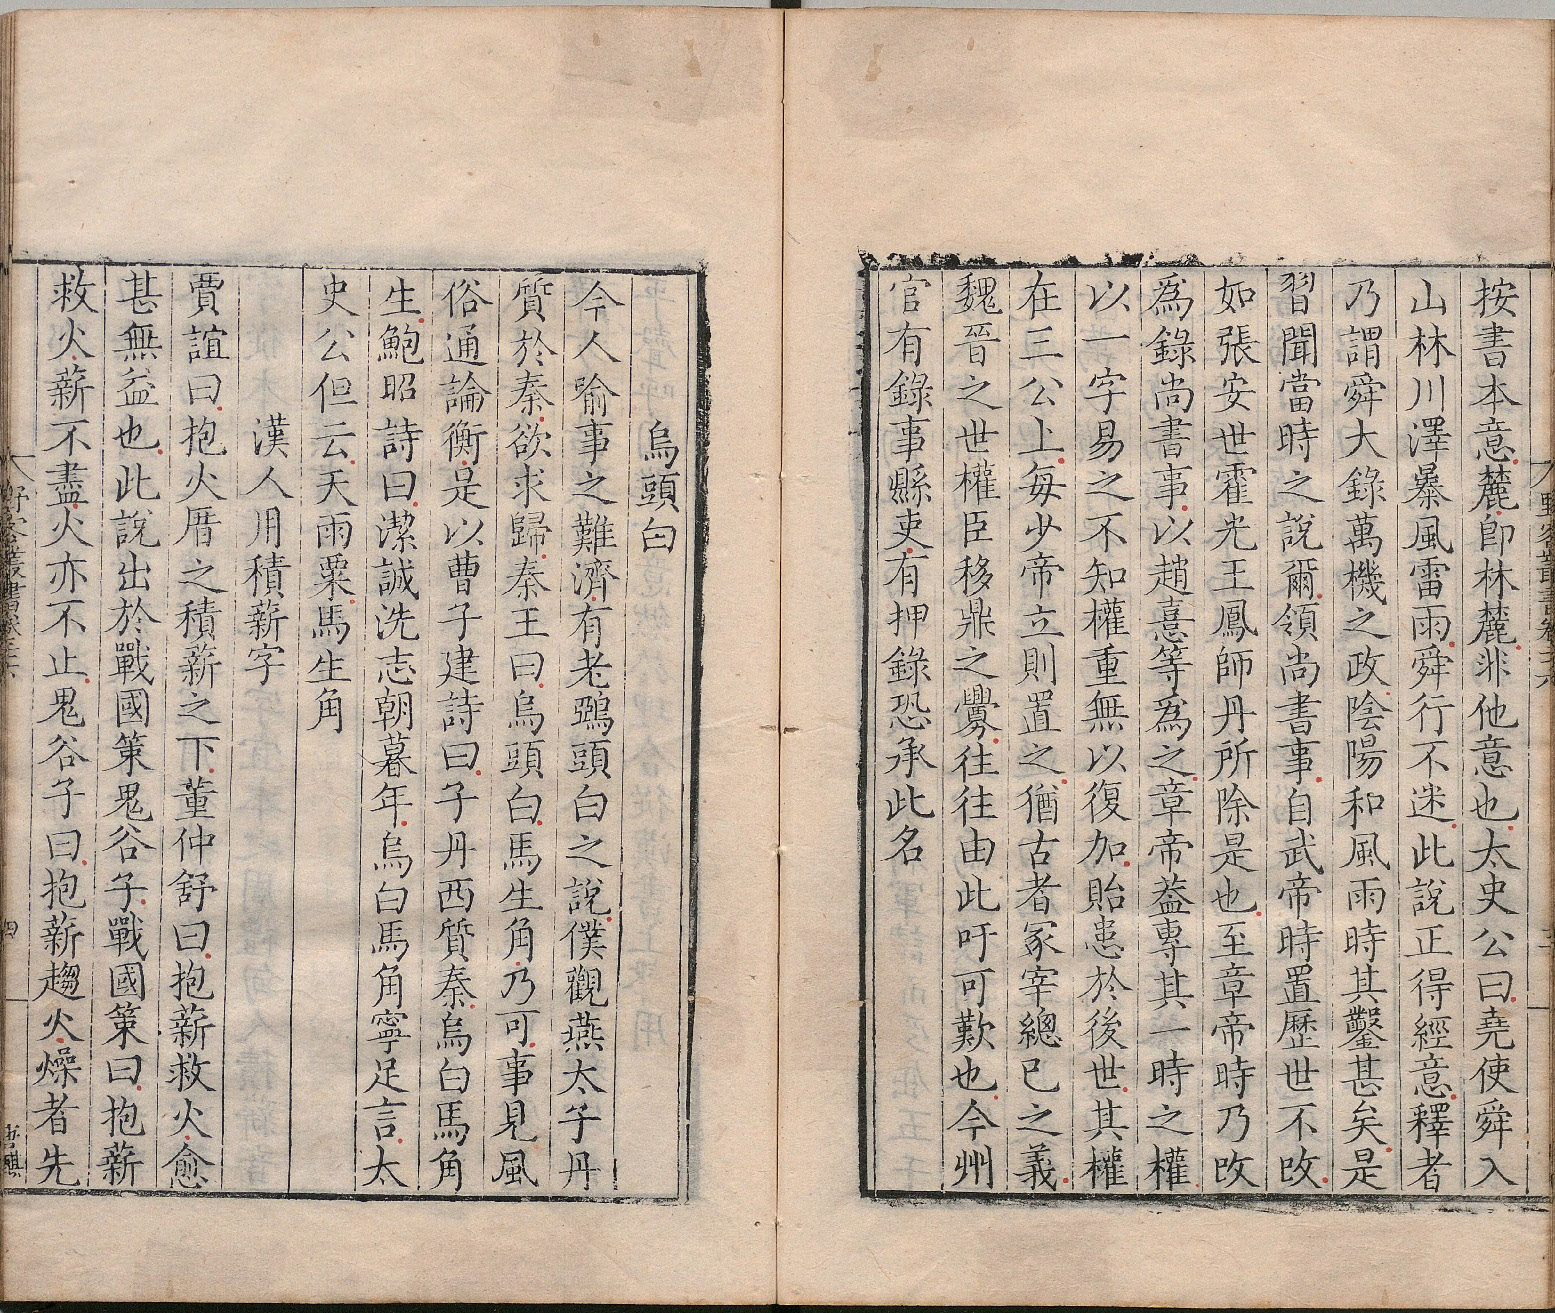 按書本意麓卽林麓非他意也太史公曰堯使舜入
山林川澤暴風雷雨舜行不迷此說正得經意釋者
乃謂舜大錄萬機之政陰陽和風雨時其鑿甚矣是
習聞當時之說爾領尚書事自武帝時置歷世不改
如張安世霍光王鳳師丹所除是也至章帝時乃改
爲錄尚書事以趙憙等爲之章帝蓋專其一時之權
以一字易之不知權重無以復加貽患於後世其權
在三公上每少帝立則置之猶古者冢宰總已之義
魏晉之世權臣移鼎之釁往往由此吁可歎也今州
官有錄事縣吏有押錄恐承此名
烏頭白
今人喻事之難濟有老鵶頭白之說僕觀燕太子丹
質於秦欲求歸秦王曰烏頭白馬生角乃可事見風
俗通論衡是以曹子建詩曰子丹西質秦烏白馬角
生鮑昭詩曰潔誠洗志朝暮年烏白馬角寧足言太
史公但云天雨粟馬生角
漢人用積薪字
賈誼曰抱火厝之積薪之下董仲舒曰抱薪救火愈
甚無益也此說出於戰國策鬼谷子戰國策曰抱薪
救火薪不盡火亦不止鬼谷子曰抱薪趨火燥者先